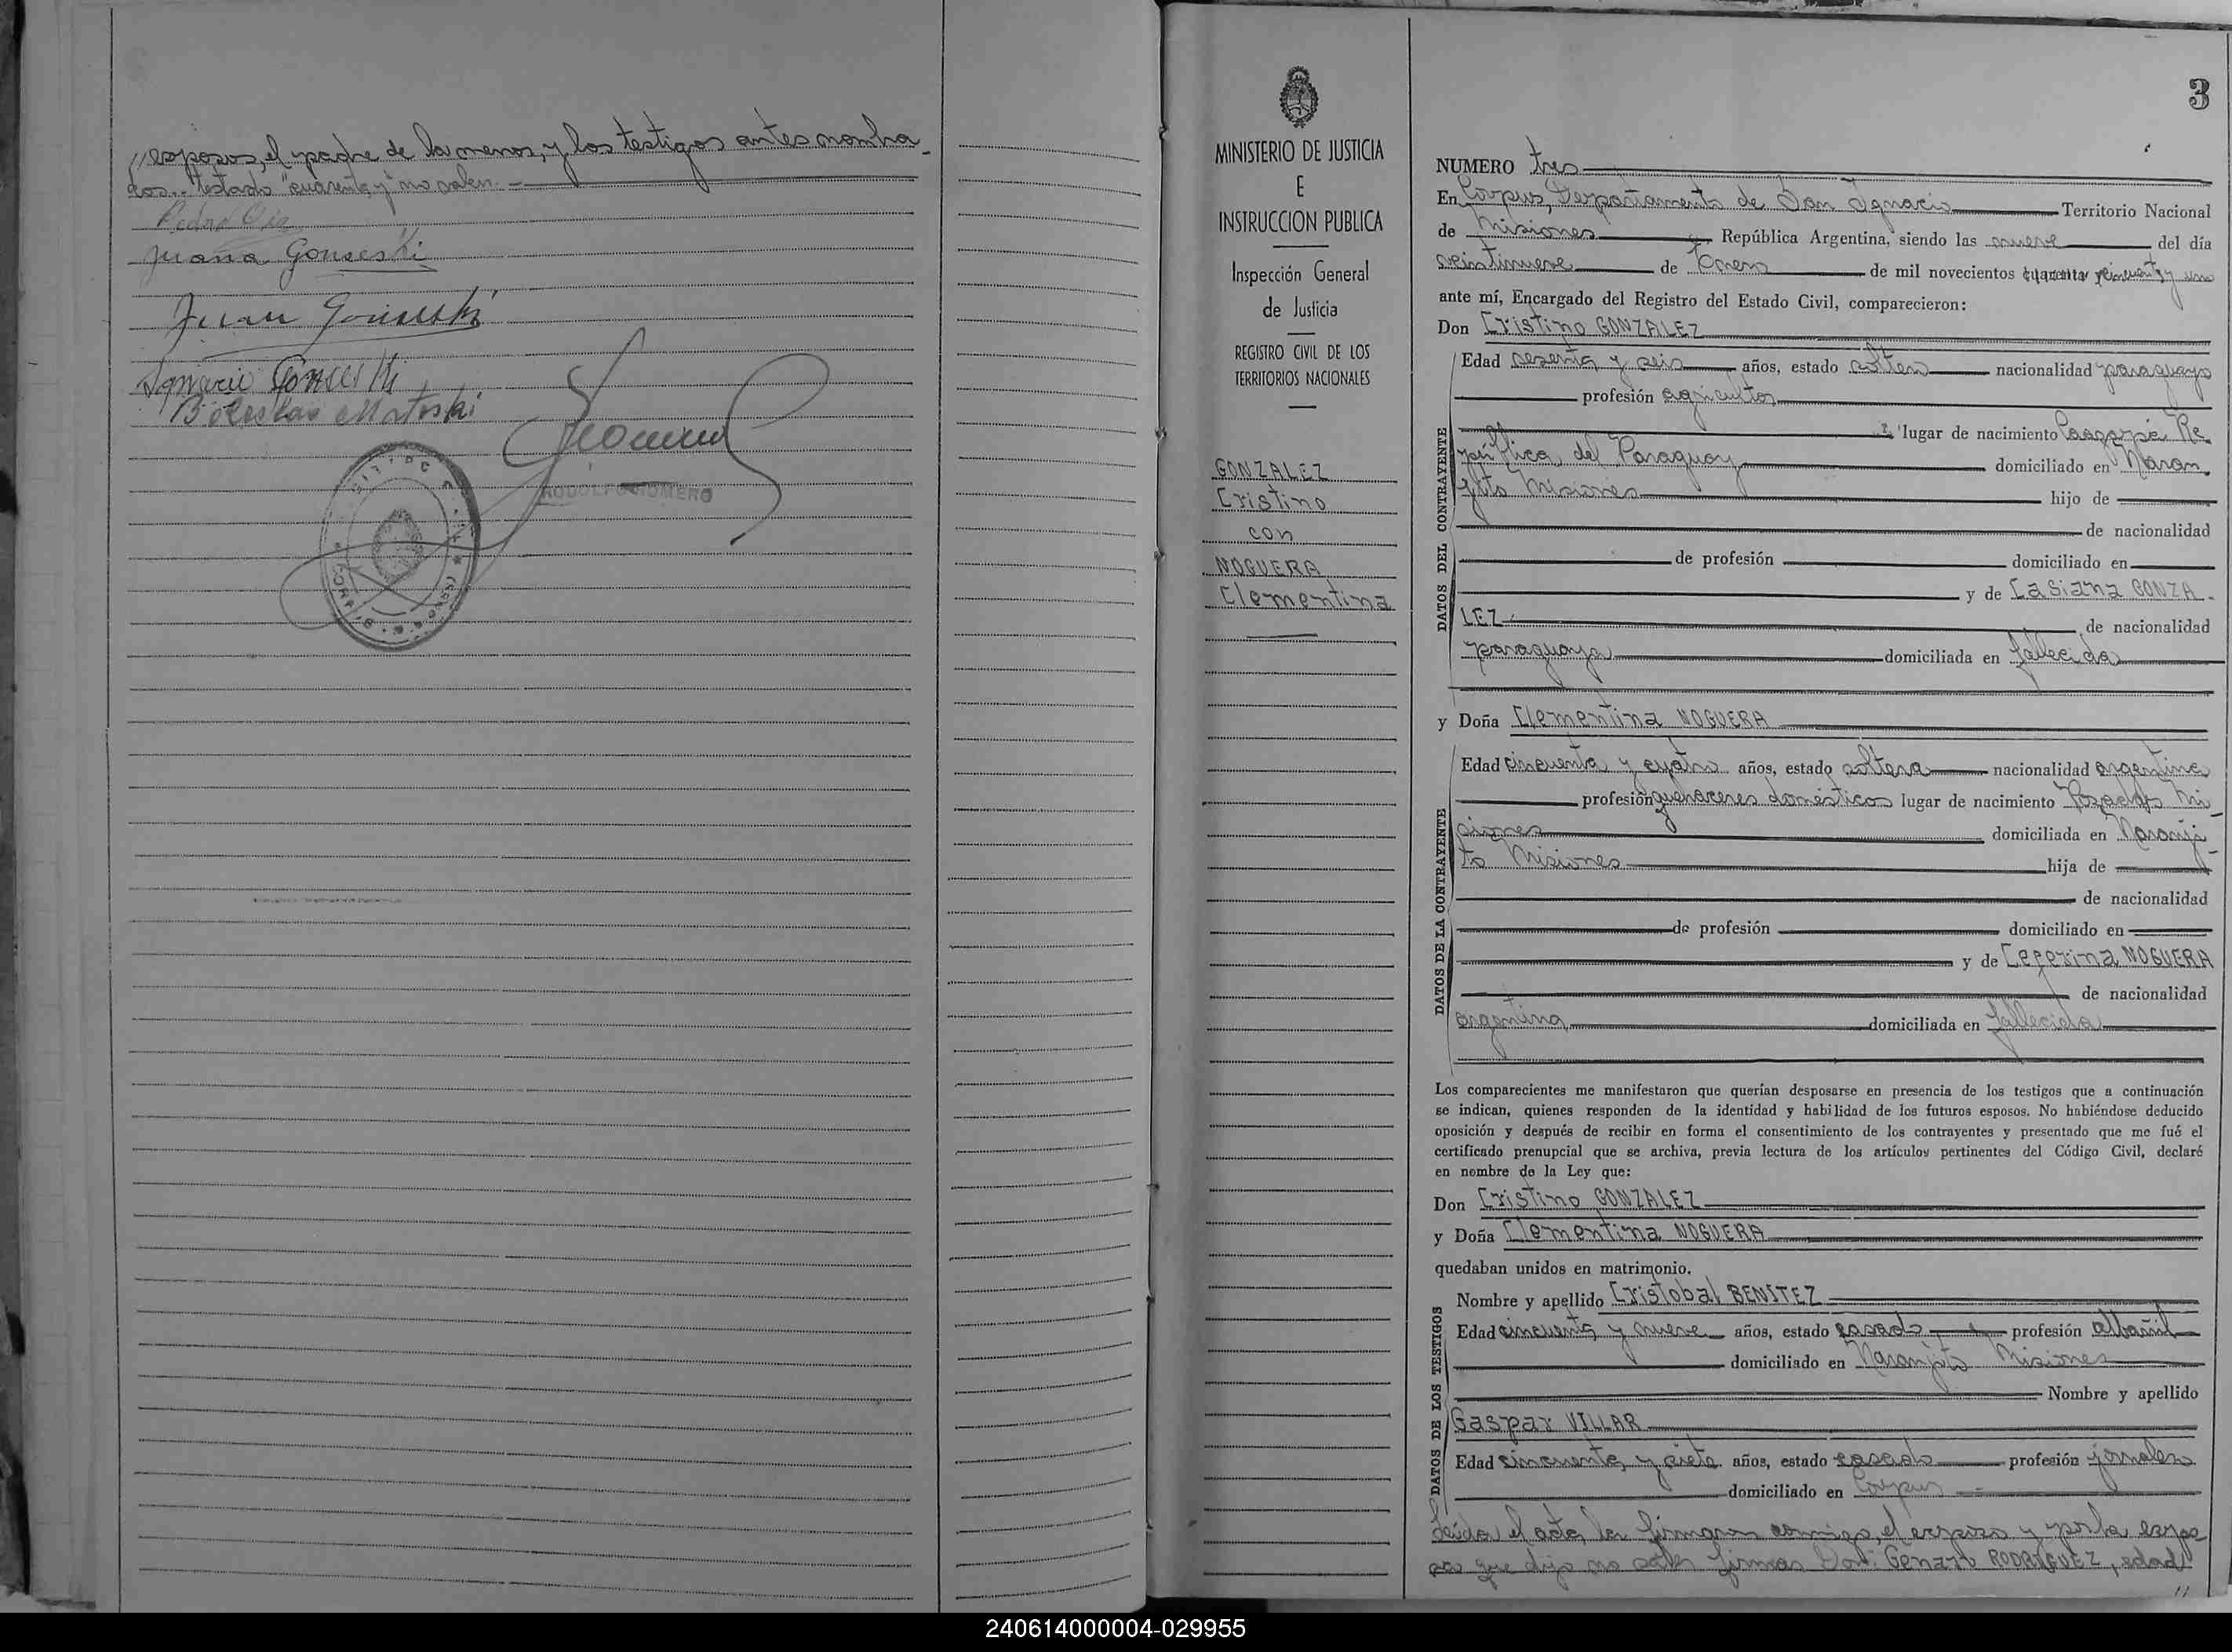 // esposos, el padre de la menor, y los testigos antes nombra-
dos.. testado "cuarenta y" no valen. -
Pedro
Juana Gonseski
Juan Gonseski
Ignacio Gonseski
Boleslao
RODOLFO ROMERO
MINISTERIO DE JUSTICIA
E
INSTRUCCION PUBLICA
Inspección General
de Justicia
REGISTRO CIVIL DE LOS
TERRITORIOS NACIONALES
GONZALEZ
Cristino
con
NOGUERA
Clementina
3
NUMERO tres
En Corpus, Departamento de San Ignacio Territorio Nacional
de Misiones República Argentina, siendo las nueve del día
veintinueve de Enero de mil novecientos cuarenta y cincuenta y uno
ante mí, Encargado del Registro del Estado Civil, comparecieron:
Don Cristino GONZALEZ
DATOS DEL CONTRAYENTE
Edad sesenta y seis años, estado soltero nacionalidad paraguayo
profesión agricultor
lugar de nacimiento Re
pública del Paraguay domiciliado en Naran
jito Misiones hijo de
de nacionalidad
de profesión domiciliado en
y de Casiana GONZA-
LEZ de nacionalidad
paraguaya domiciliada en fallecida
y Doña Clementina NOGUERA
DATOS DE LA CONTRAYENTE
Edad cincuenta y cuatro años, estado soltera nacionalidad argentina
profesión quehaceres domésticos lugar de nacimiento Posadas Mi
siones domiciliada en Naranji-
to Misiones hija de
de nacionalidad
de profesión domiciliado en
y de Ceferina NOGUERA
de nacionalidad
argentina domiciliada en fallecida
Los comparecientes me manifestaron que querían desposarse en presencia de los testigos que a continuación
se indican, quienes responden de la identidad y habilidad de los futuros esposos. No habiéndose deducido
oposición y después de recibir en forma el consentimiento de los contrayentes y presentado que me fué el
certificado prenupcial que se archiva, previa lectura de los artículos pertinentes del Código Civil, declaré
en nombre de la Ley que:
Don Cristino GONZALEZ
y Doña Clementina NOGUERA
quedaban unidos en matrimonio.
DATOS DE LOS TESTIGOS
Nombre y apellido Cristobal BENITEZ
Edad cincuenta y nueve años, estado casado profesión albañil
domiciliado en Naranjito Misiones
Nombre y apellido
Gaspar VILLAR
Edad cincuenta y siete años, estado casado profesión jornalero
domiciliado en Corpus
Leída el acta, la firmaron conmigo, el esposo y por la espo-
sa que dijo no saber firmar Don: Genaro RODRIGUEZ, edad
//
240614000004-029955